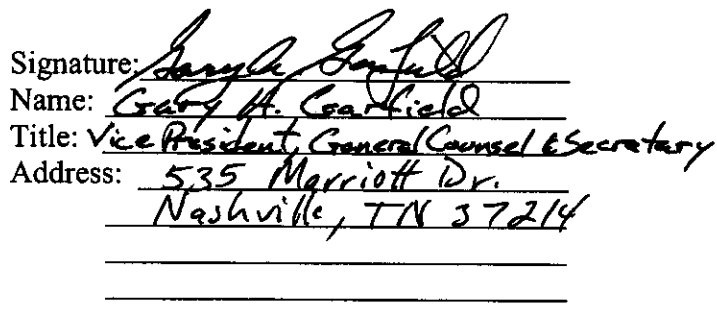 Signature: Gary A Garfield
Name: Gary A. Garfield
Title: Vice President, General Counsel & Secretary
Address: 535 Marriott Dr.
Nashville, TN 37214